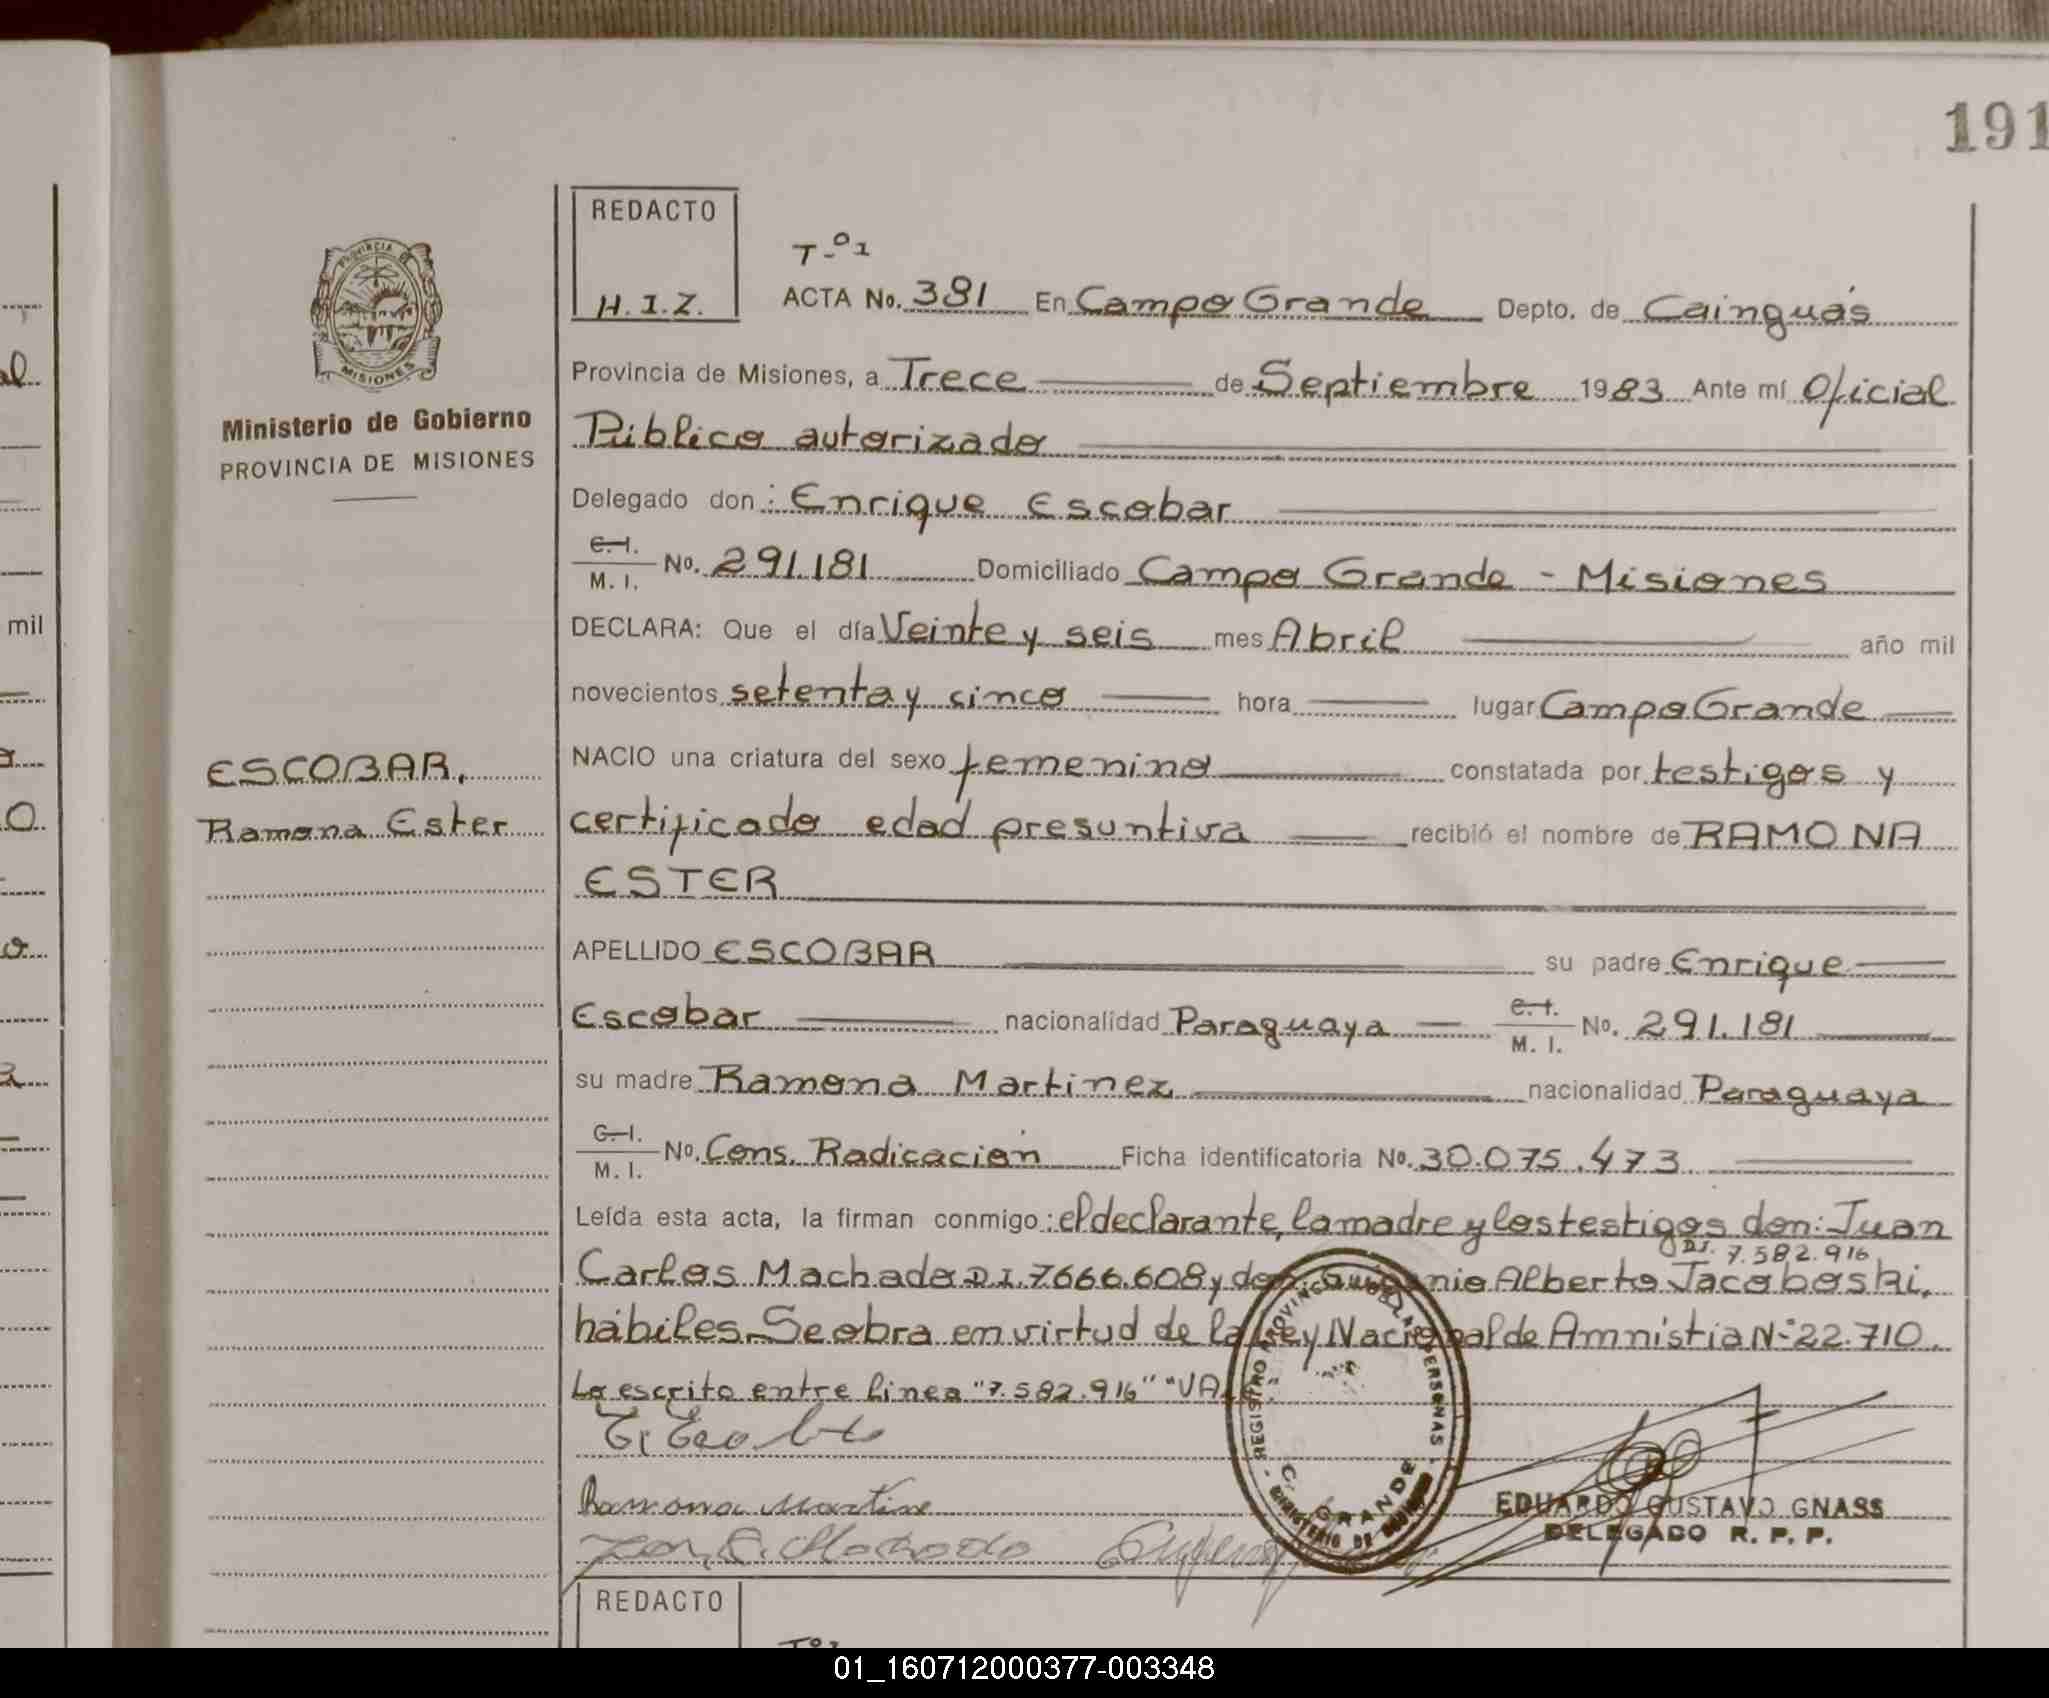 191
REDACTO
H.I.Z.
T.º1
ACTA No. 381 En Campo Grande Depto. de Cainguás
Provincia de Misiones, a Trece de Septiembre 1983 Ante mí Oficial
Público autorizado
Delegado don: Enrique Escobar
C.I. M. I. No. 291.181 Domiciliado Campo Grande - Misiones
DECLARA: Que el día Veinte y seis mes Abril año mil
novecientos setenta y cinco hora lugar Campo Grande
NACIO una criatura del sexo femenino constatada por testigos y
certificado edad presuntiva recibió el nombre de RAMONA
ESTER
APELLIDO ESCOBAR su padre Enrique
Escobar nacionalidad Paraguaya C.I. M. I. No. 291.181
su madre Ramona Martinez nacionalidad Paraguaya
C.I. M. I. No. Cons. Radicación Ficha identificatoria No. 30.075.473
Leída esta acta, la firman conmigo: el declarante, la madre y los testigos don: Juan
D.I. 7.582.916
Carlos Machado D.I. 7666.608 y don: Alberto Jacoboski,
hábiles. Se obra en virtud de la Ley Nacional de Amnistia N-º 22.710.
Lo escrito entre linea "7.582.916" "VA
Ramona Martine
EDUARDO GUSTAVO GNASS
DELEGADO R. P. P.
C. GRANDE
PROVINCIA DE MISIONES
Ministerio de Gobierno
PROVINCIA DE MISIONES
ESCOBAR,
Ramona Ester
mil
REDACTO
Tº1
01_160712000377-003348